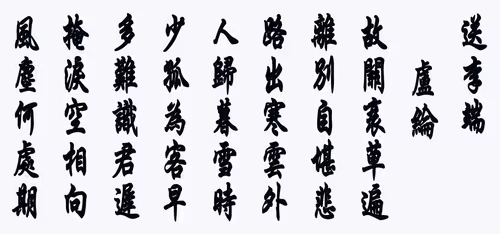 送李端
盧綸
故關衰草遍
離別自堪悲
路出寒雲外
人歸暮雪時
少孤為客早
多難識君遲
掩淚空相向
風塵何處期